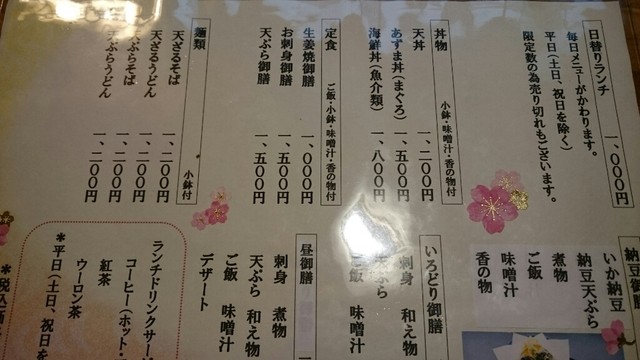 日替りランチ 一、〇〇〇円
毎日メニューがかわります。
平日(土日、祝日を除く)
限定数の為売り切れもございます。
丼物 小鉢・味噌汁・香の物付
天丼 一、二〇〇円
あずま丼(まぐろ) 一、五〇〇円
海鮮丼(魚介類) 一、八〇〇円
定食 ご飯・小鉢・味噌汁・香の物付
生姜焼御膳 一、〇〇〇円
お刺身御膳 一、五〇〇円
天ぷら御膳 一、五〇〇円
麺類 小鉢付
天ざるそば 一、二〇〇円
天ざるうどん 一、二〇〇円
天ぷらそば 一、二〇〇円
天ぷらうどん 一、二〇〇円
いか納豆
納豆天ぷら
煮物
ご飯
味噌汁
香の物
いろどり御膳
刺身 煮物
天ぷら 和え物
ご飯 味噌汁
昼御膳
刺身 煮物
天ぷら 和え物
ご飯 味噌汁
デザート
ランチドリンクサー
コーヒー(ホット・
紅茶
ウーロン茶
*平日(土日、祝日を